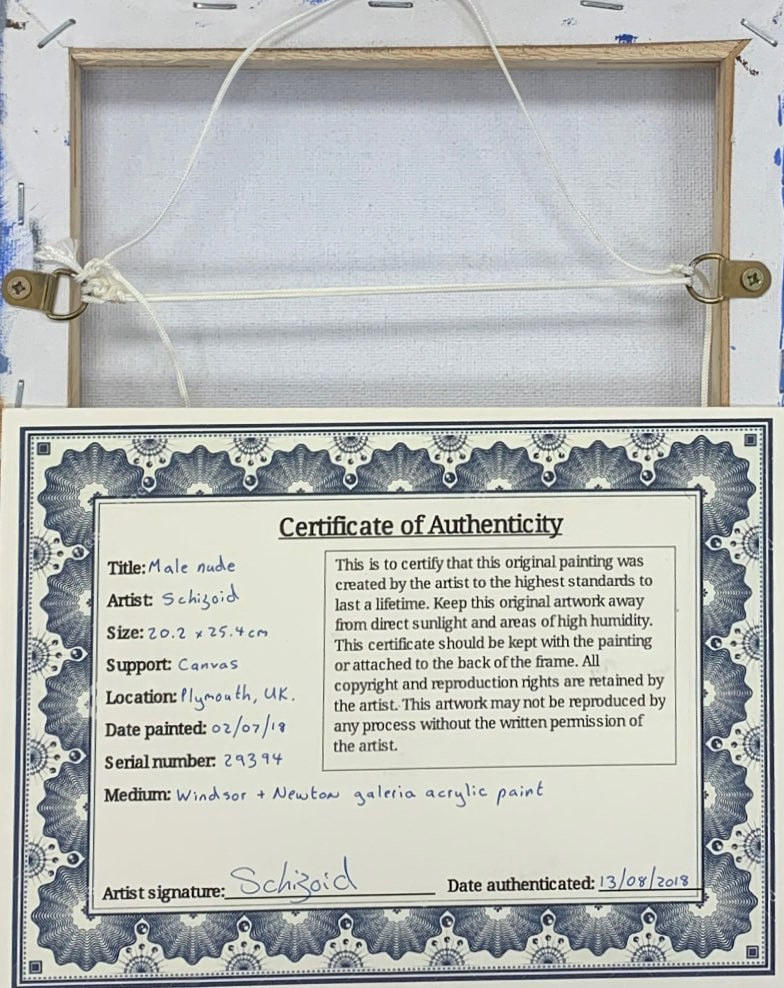 Certificate of Authenticity
Title: Male nude
Artist: Schizoid
Size: 20.2 x 25.4cm
Support: Canvas
Location: Plymouth, UK.
Date painted: 02/07/18
Serial number: 29394
Medium: Windsor + Newton galeria acrylic paint
This is to certify that this original painting was
created by the artist to the highest standards to
last a lifetime. Keep this original artwork away
from direct sunlight and areas of high humidity.
This certificate should be kept with the painting
or attached to the back of the frame. All
copyright and reproduction rights are retained by
the artist. This artwork may not be reproduced by
any process without the written permission of
the artist.
Artist signature: Schizoid
Date authenticated: 13/08/2018